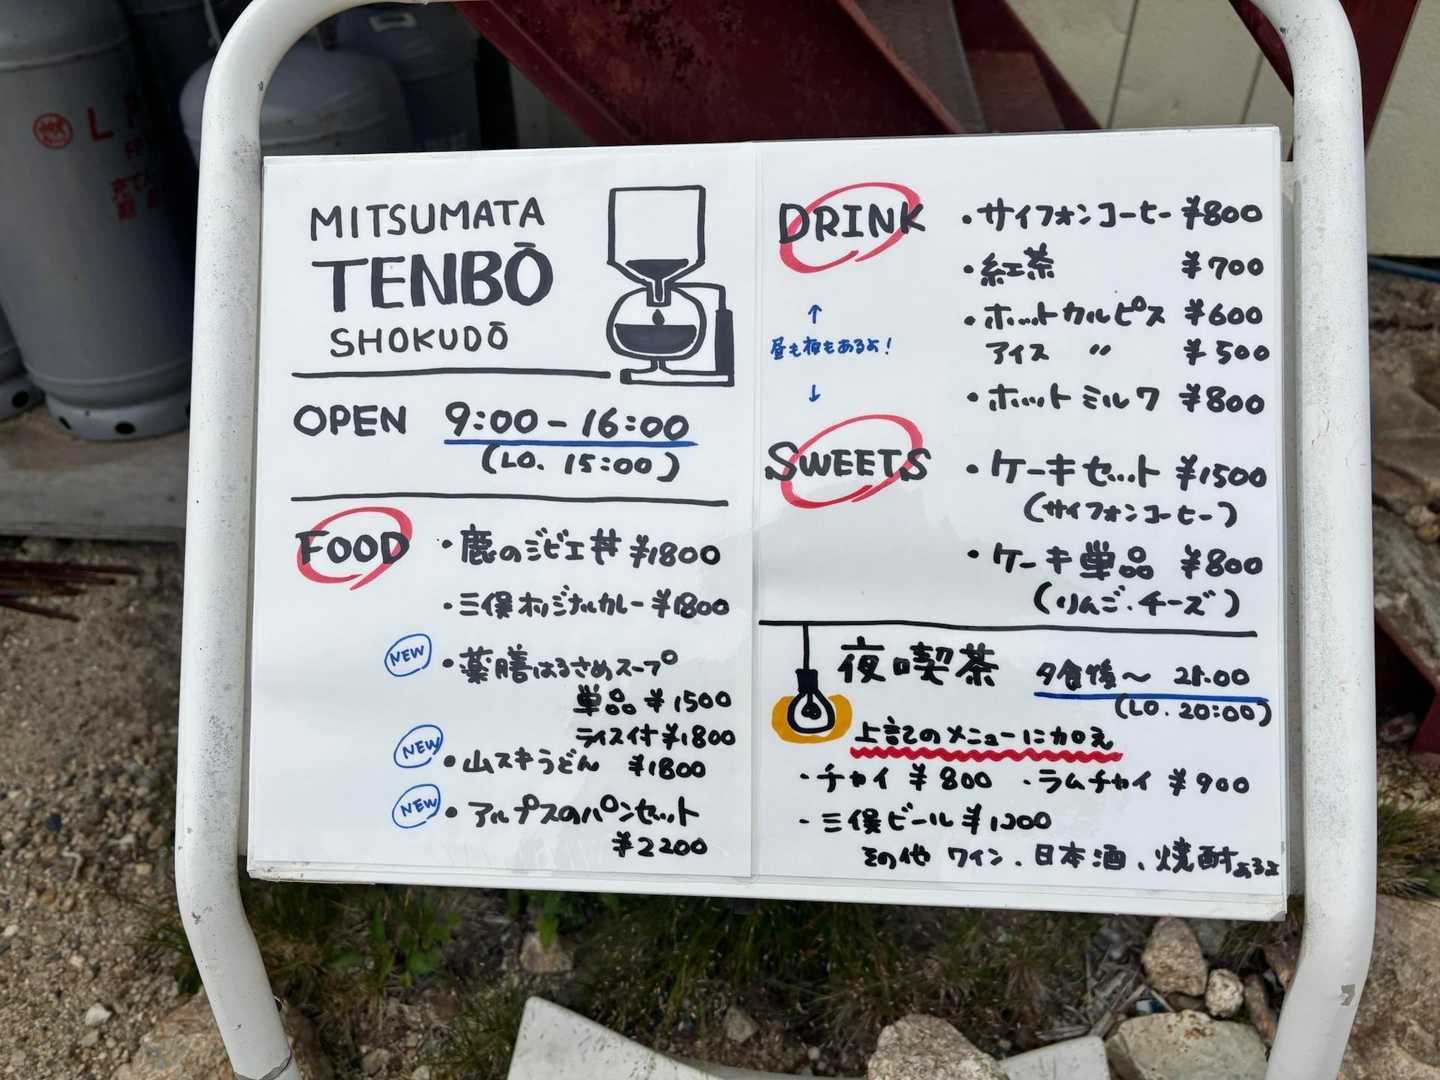 MITSUMATA
TENBŌ
SHOKUDŌ
OPEN 9:00-16:00
(LO. 15:00)
FOOD
・鹿のジビエ丼 ¥1800
・三俣オリジナルカレー ¥1800
NEW ・薬膳はるさめスープ
単品 ¥1500
ライス付 ¥1800
NEW ・山スキうどん ¥1800
NEW ・アルプスのパンセット
¥2200
DRINK
・サイフォンコーヒー ¥800
・紅茶 ¥700
・ホットカルピス ¥600
アイス 〃 ¥500
・ホットミルク ¥800
↑
昼も夜もあるよ!
↓
SWEETS
・ケーキセット ¥1500
(サイフォンコーヒー)
・ケーキ単品 ¥800
(りんご・チーズ)
夜喫茶 夕食後〜21:00
(LO. 20:00)
上記のメニューに加え
・チャイ ¥800 ・ラムチャイ ¥900
・三俣ビール ¥1200
その他 ワイン、日本酒、焼酎あるよ